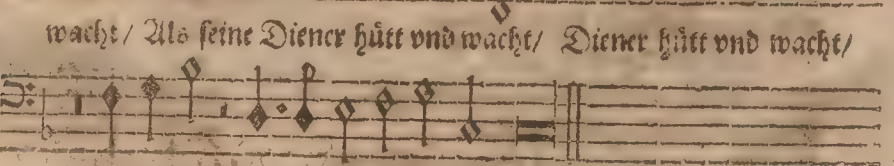 wacht/ Als seine Diener hütt vnd wacht/ Diener hütt vnd wacht/